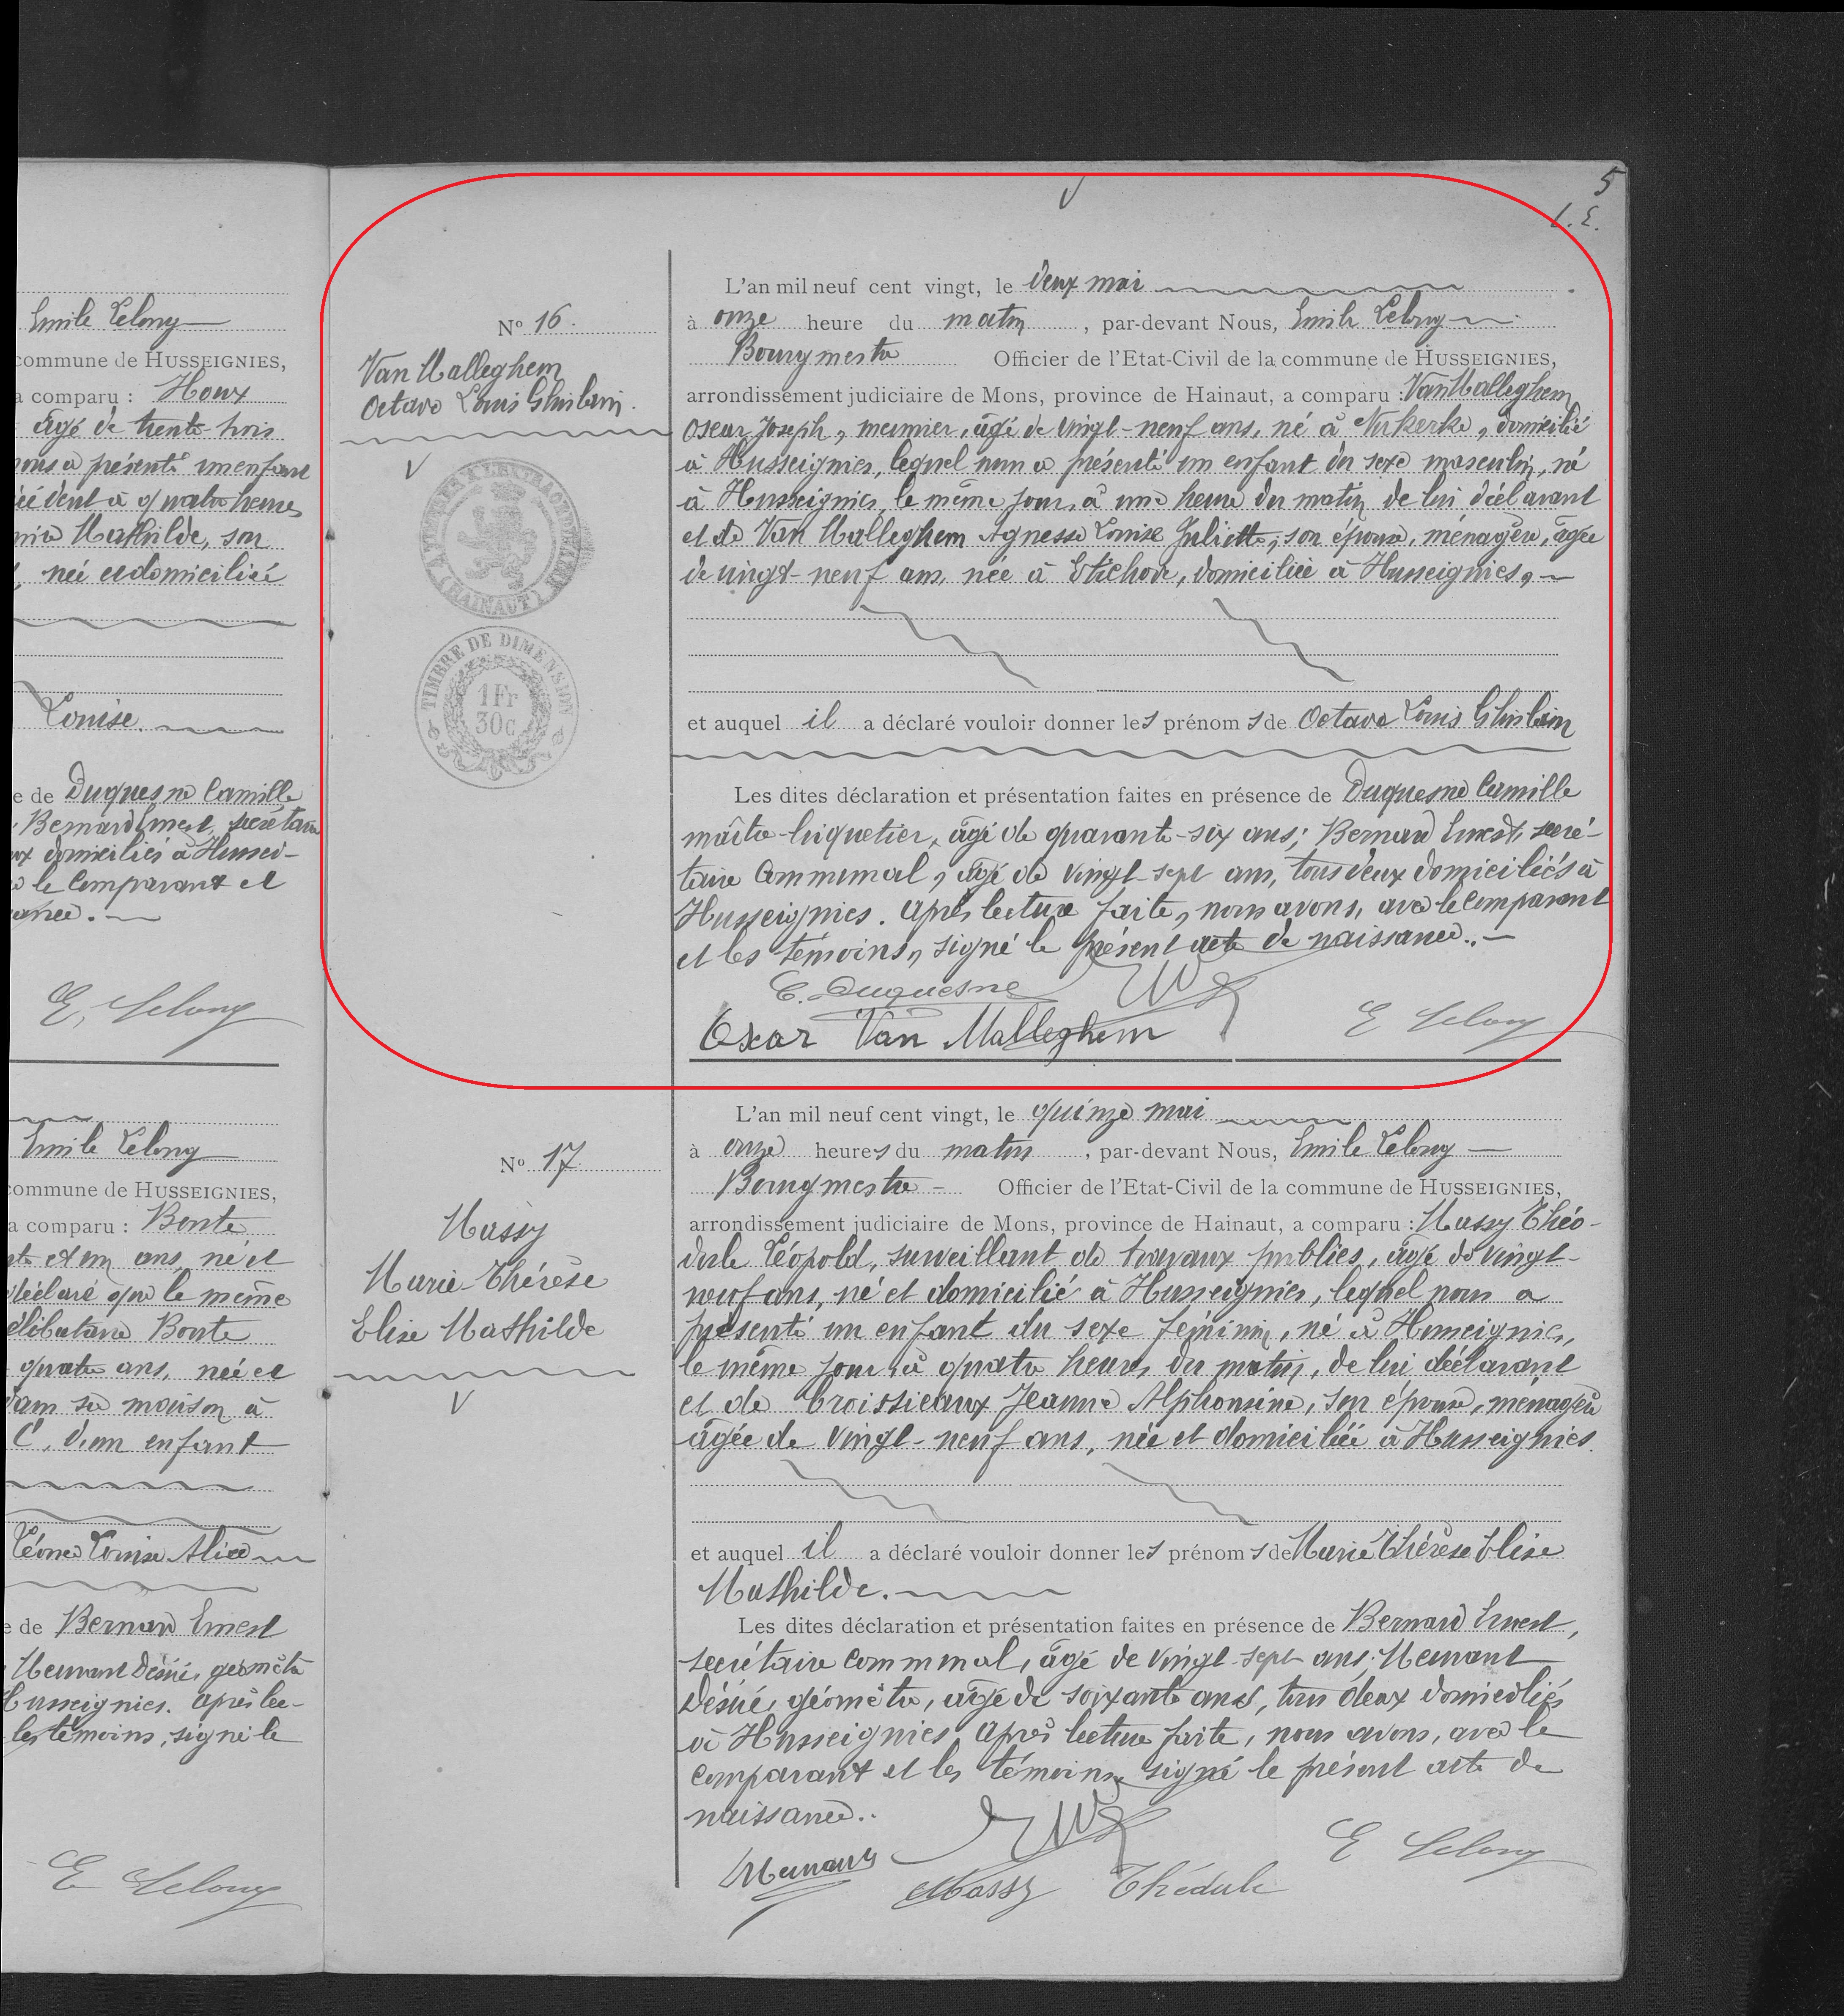 Emile Lelong
commune de HUSSEIGNIES,
a comparu : Houx
âgé de trente-trois
nous a présenté un enfant
à quatre heures
Mathilde, son
née et domiciliée
Louise.
e de Duquesne Camille
Bernard Ernest, secrétaire
domiciliés à Hussei-
le Comparant et
E. Lelong
Emile Lelong
commune de HUSSEIGNIES,
a comparu : Bonte
et un ans, né et
déclaré que le même
Bonte
quatre ans, née et
dans sa maison à
C, d'un enfant
Léonce Louise Alice
e de Bernard Ernest
Meurant Désiré, géomètre
Husseignies. Après lec-
les témoins, signé le
E Lelong
5
L.E.
No 16.
Van Malleghem
Octave Louis Ghislain.
TIMBRE À L'EXTRAORDINAIRE
(HAINAUT)
TIMBRE DE DIMENSION
1 Fr
30c
L'an mil neuf cent vingt, le deux mai
à onze heure du matin, par-devant Nous, Emile Lelong
Bourgmestre Officier de l'Etat-Civil de la commune de HUSSEIGNIES,
arrondissement judiciaire de Mons, province de Hainaut, a comparu : Van Malleghem
Oscar Joseph, meunier, âgé de vingt-neuf ans, né à Nukerke, domicilié
à Husseignies, lequel nous a présenté un enfant du sexe masculin, né
à Husseignies, le même jour, à une heure du matin, de lui déclarant
et de Van Malleghem Agnesse Louise Juliette, son épouse, ménagère, âgée
de vingt-neuf ans, née à Etichove, domiciliée à Husseignies,
et auquel il a déclaré vouloir donner les prénoms de Octave Louis Ghislain
Les dites déclaration et présentation faites en présence de Duquesne Camille
maître-briquetier, âgé de quarante-six ans; Bernard Ernest, secré-
taire Communal, âgé de vingt-sept ans, tous deux domiciliés à
Husseignies. Après lecture faite, nous avons, avec le Comparant
et les témoins, signé le présent acte de naissance.
C. Duquesne
Oscar Van Malleghem
E Lelong
No 17
Massy
Marie-Thérèse
Elise Mathilde
L'an mil neuf cent vingt, le quinze mai
à onze heures du matin, par-devant Nous, Emile Lelong
Bourgmestre Officier de l'Etat-Civil de la commune de HUSSEIGNIES,
arrondissement judiciaire de Mons, province de Hainaut, a comparu : Massy Théo-
dule Léopold, surveillant de travaux publics, âgé de vingt-
neuf ans, né et domicilié à Husseignies, lequel nous a
présenté un enfant du sexe féminin, né à Husseignies,
le même jour, à quatre heures du matin, de lui déclarant
et de Croissieaux Jeanne Alphonsine, son épouse, ménagère
âgée de vingt-neuf ans, née et domiciliée à Husseignies.
et auquel il a déclaré vouloir donner les prénoms de Marie Thérèse Elise
Mathilde.
Les dites déclaration et présentation faites en présence de Bernard Ernest,
secrétaire communal, âgé de vingt-sept ans; Meurant
Désiré, géomètre, âgé de soixante ans, tous deux domiciliés
à Husseignies. Après lecture faite, nous avons, avec le
comparant et les témoins, signé le présent acte de
naissance.
Meurant
Massy Théodule
E Lelong